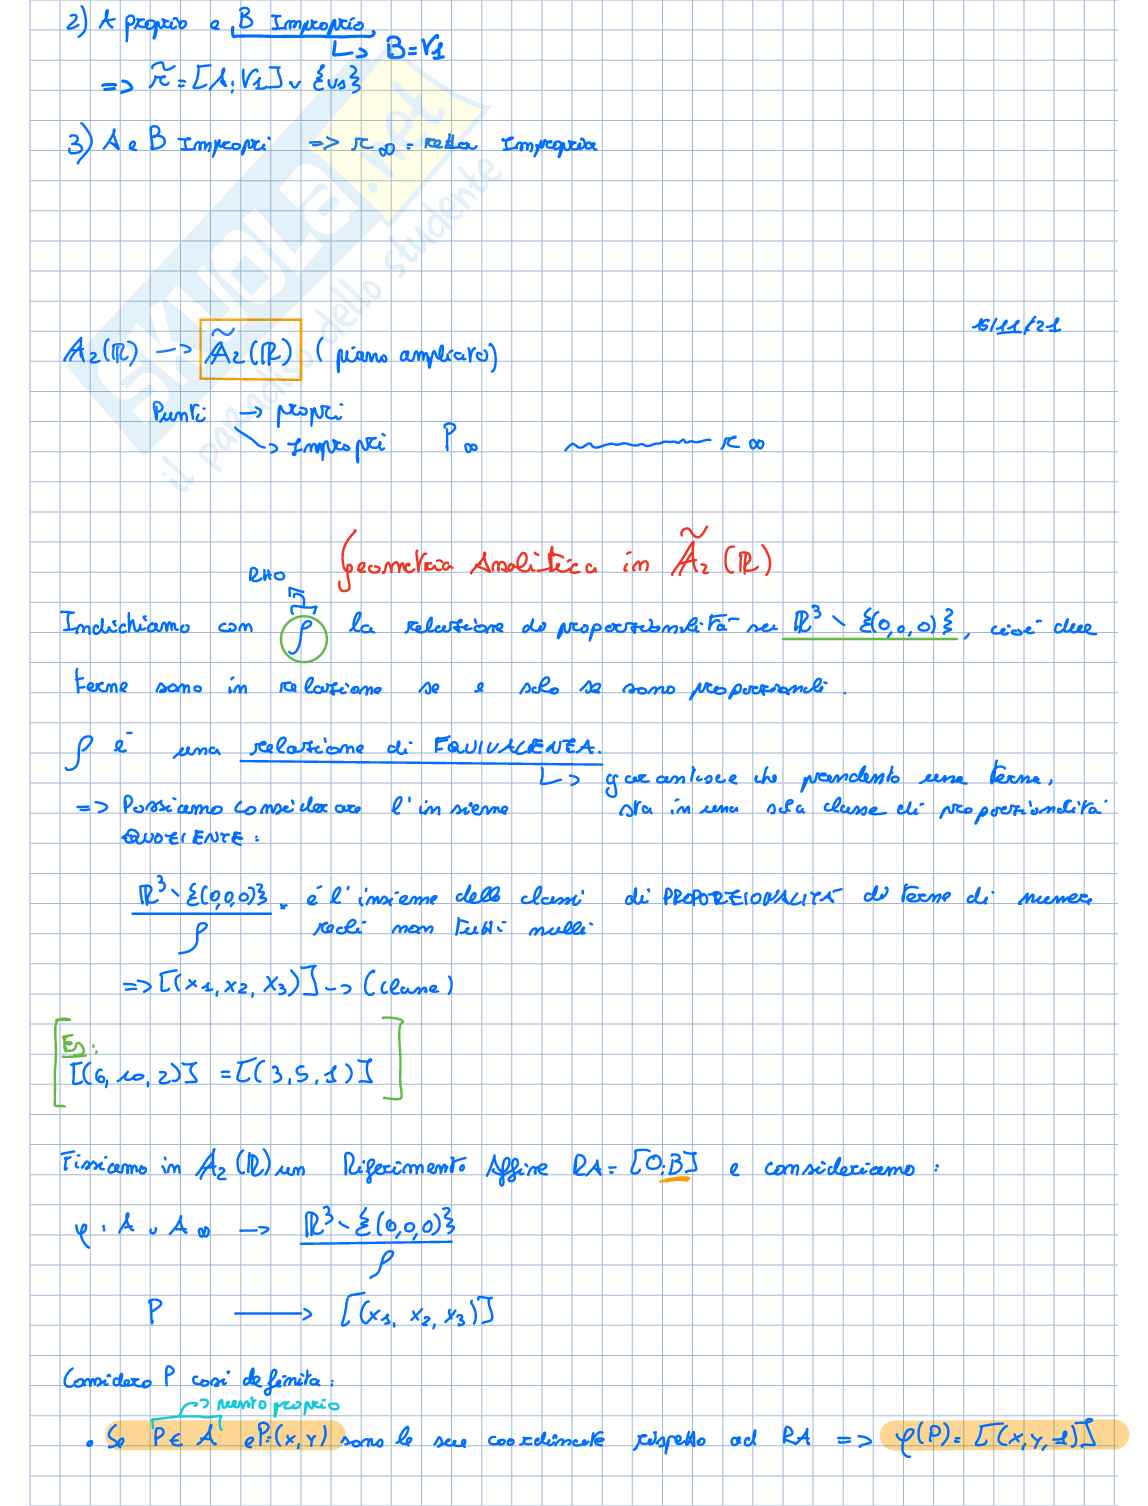 2) A proprio e B Improprio
↳ B=V1
=> r̃ = [A; V1] ∪ {V1}
3) A e B Impropri => r∞ = retta Impropria
SKUOLA.net
il paradiso dello studente
15/11/21
A2(ℝ) -> Ã2(ℝ) (piano ampliato)
Punti -> propri
-> Impropri P∞ r∞
Geometria Analitica in Ã2(ℝ)
RHO
Indichiamo con ρ la relazione di proporzionalità su ℝ³ \ {(0,0,0)}, cioè due
terne sono in relazione se e solo se sono proporzionali.
ρ è una relazione di EQUIVALENZA.
↳ garantisce che prendento una terna,
=> Possiamo considerare l'insieme sta in una sola classe di proporzionalità
QUOZIENTE:
ℝ³ \ {(0,0,0)} = è l'insieme delle classi di PROPORZIONALITÀ di terne di numeri
ρ reali non tutti nulli
=> [(x1, x2, x3)] -> (classe)
Es:
[(6, 10, 2)] = [(3, 5, 1)]
Fissiamo in A2(ℝ) un Riferimento Affine RA = [O; B] e consideriamo:
φ: A ∪ A∞ -> ℝ³ \ {(0,0,0)}
ρ
P -> [(x1, x2, x3)]
Considero P così definita:
-> punto proprio
• Se P ∈ A e P=(x,y) sono le sue coordinate rispetto ad RA => φ(P) = [(x,y,1)]